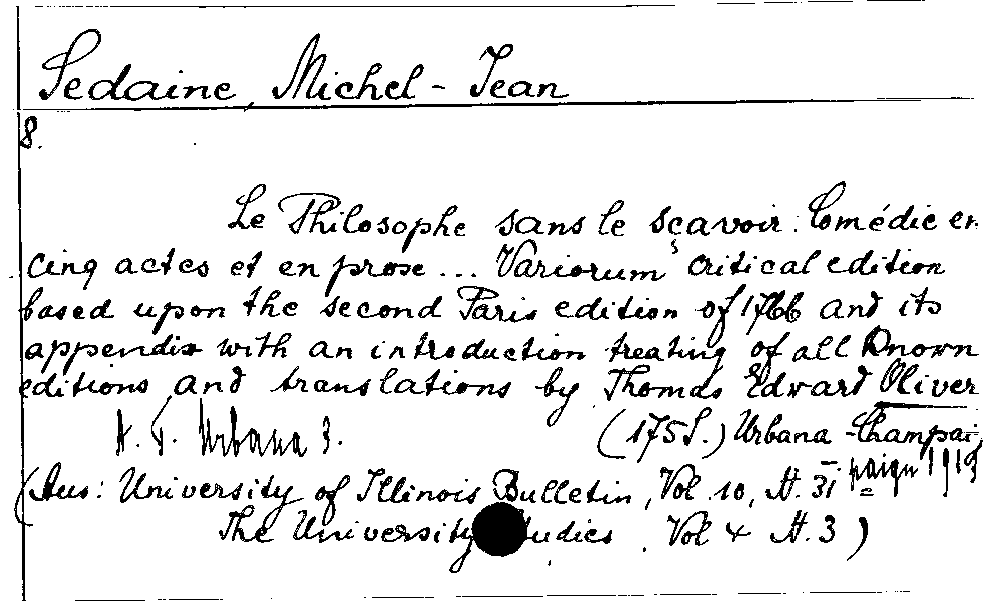 Sedaine, Michel-Jean
8.
Le Philosophe sans le sçavoir. Comédie en
cinq actes et en prose ... Variorum critical edition
based upon the second Paris edition of 1766 and its
appendix with an introduction treating of all known
editions and translations by Thomas Edward Oliver
Urbana 3. (175 S.) Urbana-Champai
paign 1913
(Aus: University of Illinois Bulletin, Vol. 10, H. 31
The University Studies. Vol 4 H. 3)